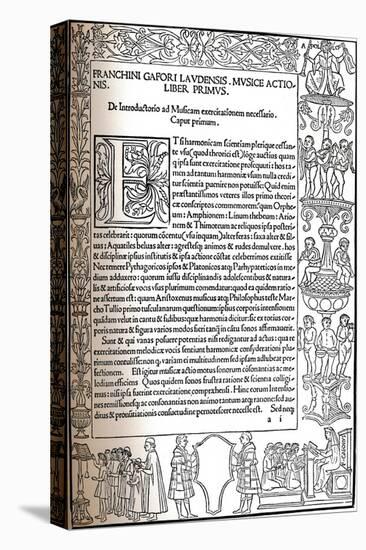 APOL
FRANCHINI GAFORI LAVDENSIS. MVSICE ACTIO
NIS. LIBER PRIMVS.
De Introductorio ad Musicam exercitationem necessario.
Caput primum.
ETSI harmonicam scientiam plerique cessan-
te usu
ipsa sunt exercitatione prosequuti: hos ta
men ad tantum harmoniæ usum nulla credi
tur scientia pumire non potuisse: Quid enim
præstantissimos veteres illos primo theori
cæ conscriptos commemorem: quum Orphe
um: Amphionem: Linum thebeum: Ario
nem & Thimoteum ac reliquos ipsa posteri
tas celebrarit: quorum alter feras: alter & sil
uas: Aquatiles beluas alter: agrestesque animos & rudes demulxere. hos
& disciplinæ ipsius institutis & ipsa actione celeberrimos extitisse
Nec temere Pythagoricis ipsos & Platonicis atque Parhypateticis in me
dium adduxero: quorum disciplinandis adolescentibus & natura
lis & artificiosæ vocis usus plurimum comendatur: quod ea quidem ratio
ne assertum est: quam Aristoxenus musicus atque Philosophus teste Mar
cho Tullio primo tusculanarum quæstionum: ipsius corporis intensionem
quidam velut in cantu & fidibus: quæ harmonia dicitur: ex totius cor
poris natura & figura varios modos fieri tanquam in cantu sonos affirmauerit.
Sunt & qui vanas posuere potentias nisi redigantur ad actus: quare
exercitationem melodicæ vocis sentiunt harmonicæ considerationi plu
rimum contulisse: non quam varia et multitudinem sed ipsam adhibeat per
fectionem. Est igitur musicæ actio motus sonorum consonantias ac me
lodiam efficiens Quos quidem sonos frustra ratione & scientia colligi
mus: nisi ipsa fuerint exercitatione comprehensi. Hinc eorum Intensio
nes remissionesque: ac consonantias non animo tantum atque ratione: sed au
ditus & pronuntiationis consuetudine pernotescere necesse est. Sed neque
a i